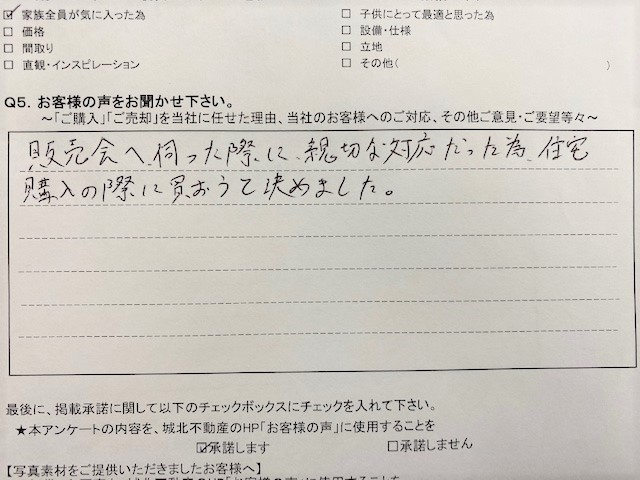 ☑ 家族全員が気に入った為 □ 子供にとって最適と思った為
□ 価格 □ 設備・仕様
□ 間取り □ 立地
□ 直観・インスピレーション □ その他( )
Q5. お客様の声をお聞かせ下さい。
～「ご購入」「ご売却」を当社に任せた理由、当社のお客様へのご対応、その他ご意見・ご要望等々～
販売会へ伺った際に、親切な対応だった為、住宅
購入の際に買おうと決めました。
最後に、掲載承諾に関して以下のチェックボックスにチェックを入れて下さい。
★本アンケートの内容を、城北不動産のHP「お客様の声」に使用することを
☑承諾します □承諾しません
【写真素材をご提供いただきましたお客様へ】